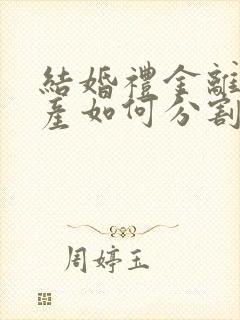 結婚禮金離
産如何分割
周婷玉